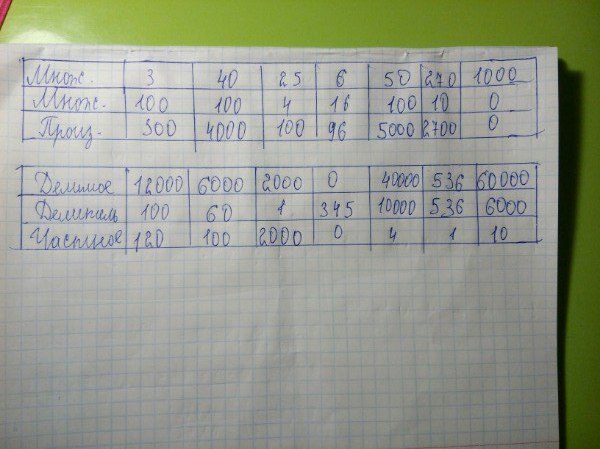 Множ. 3 40 25 6 50 270 1000
Множ. 100 100 4 16 100 10 0
Произ. 300 4000 100 96 5000 2700 0
Делимое 12000 6000 2000 0 40000 536 60000
Делитель 100 60 1 345 10000 536 6000
Частное 120 100 2000 0 4 1 10